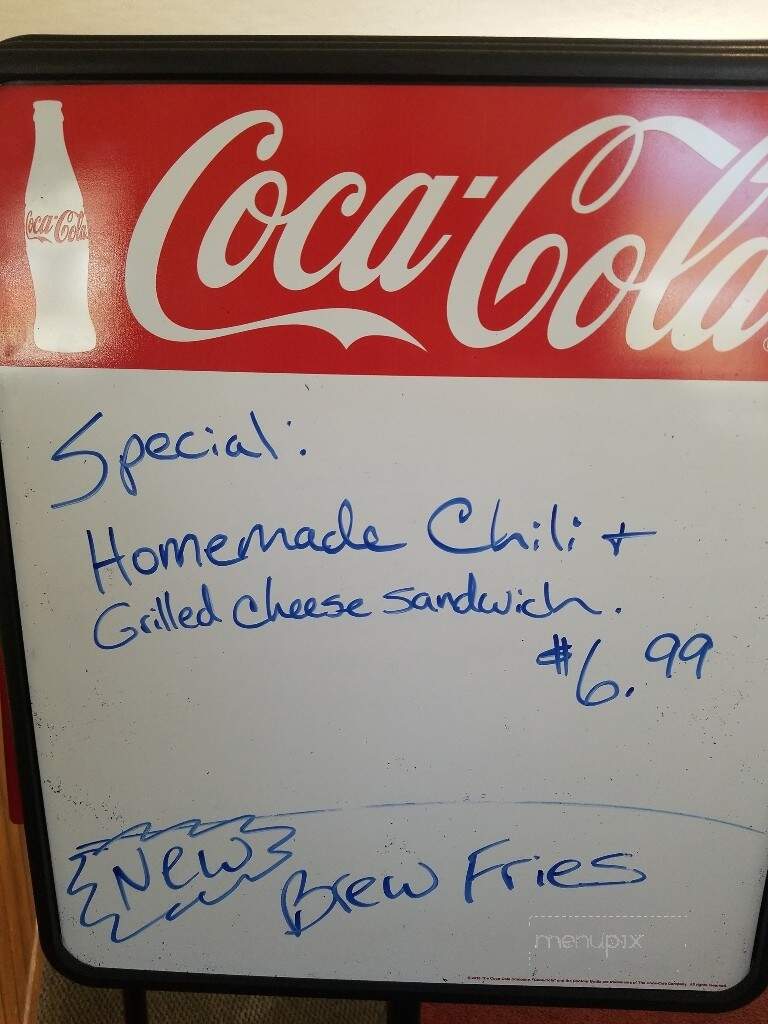 Coca-Cola
Coca-Cola
Special:
Homemade Chili +
Grilled cheese sandwich.
$6.99
New
Brew Fries
menupix